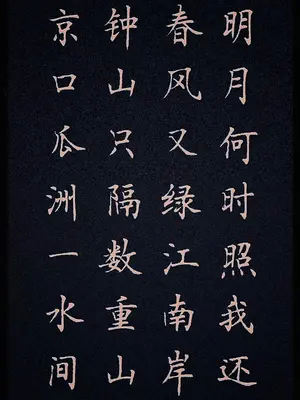 京口瓜洲一水间
钟山只隔数重山
春风又绿江南岸
明月何时照我还